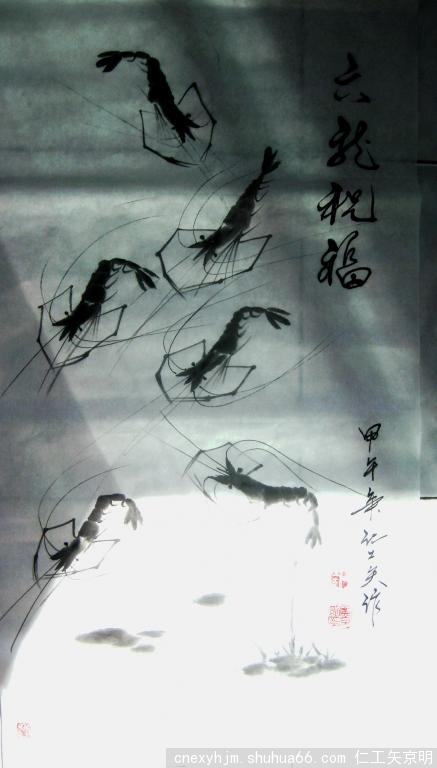 六龙祝福
甲午年仁工矢作
cnexyhjm.shuhua66.com 仁工矢京明